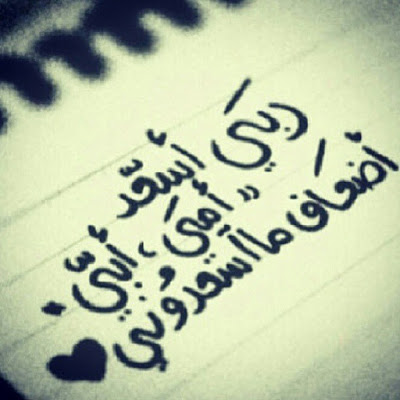 ربيَ أسعّد
" أميَ ، أبيّ "
أضعَاف ما آسعدوُني ♥